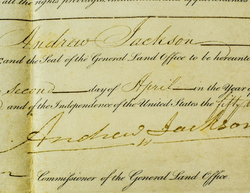 all the rights privileges immunities and appurtenances
Andrew Jackson
and the Seal of the General Land Office to be hereunto
Second day of April in the Year
and of the Independence of the United States the fifty
Andrew Jackson
Commissioner of the General Land Office